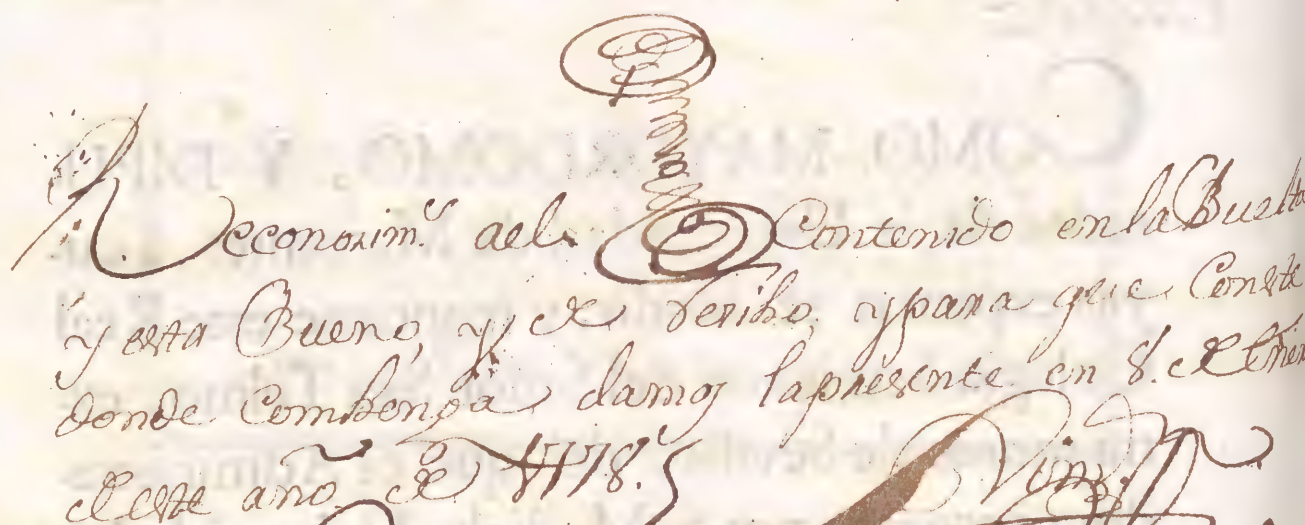 Reconosim.^to del Contenido en la Buelta
y esta Bueno, y de Resibo, y para que Conste
donde Combenga damos la presente en 8. de Ener
de este año de 1778.